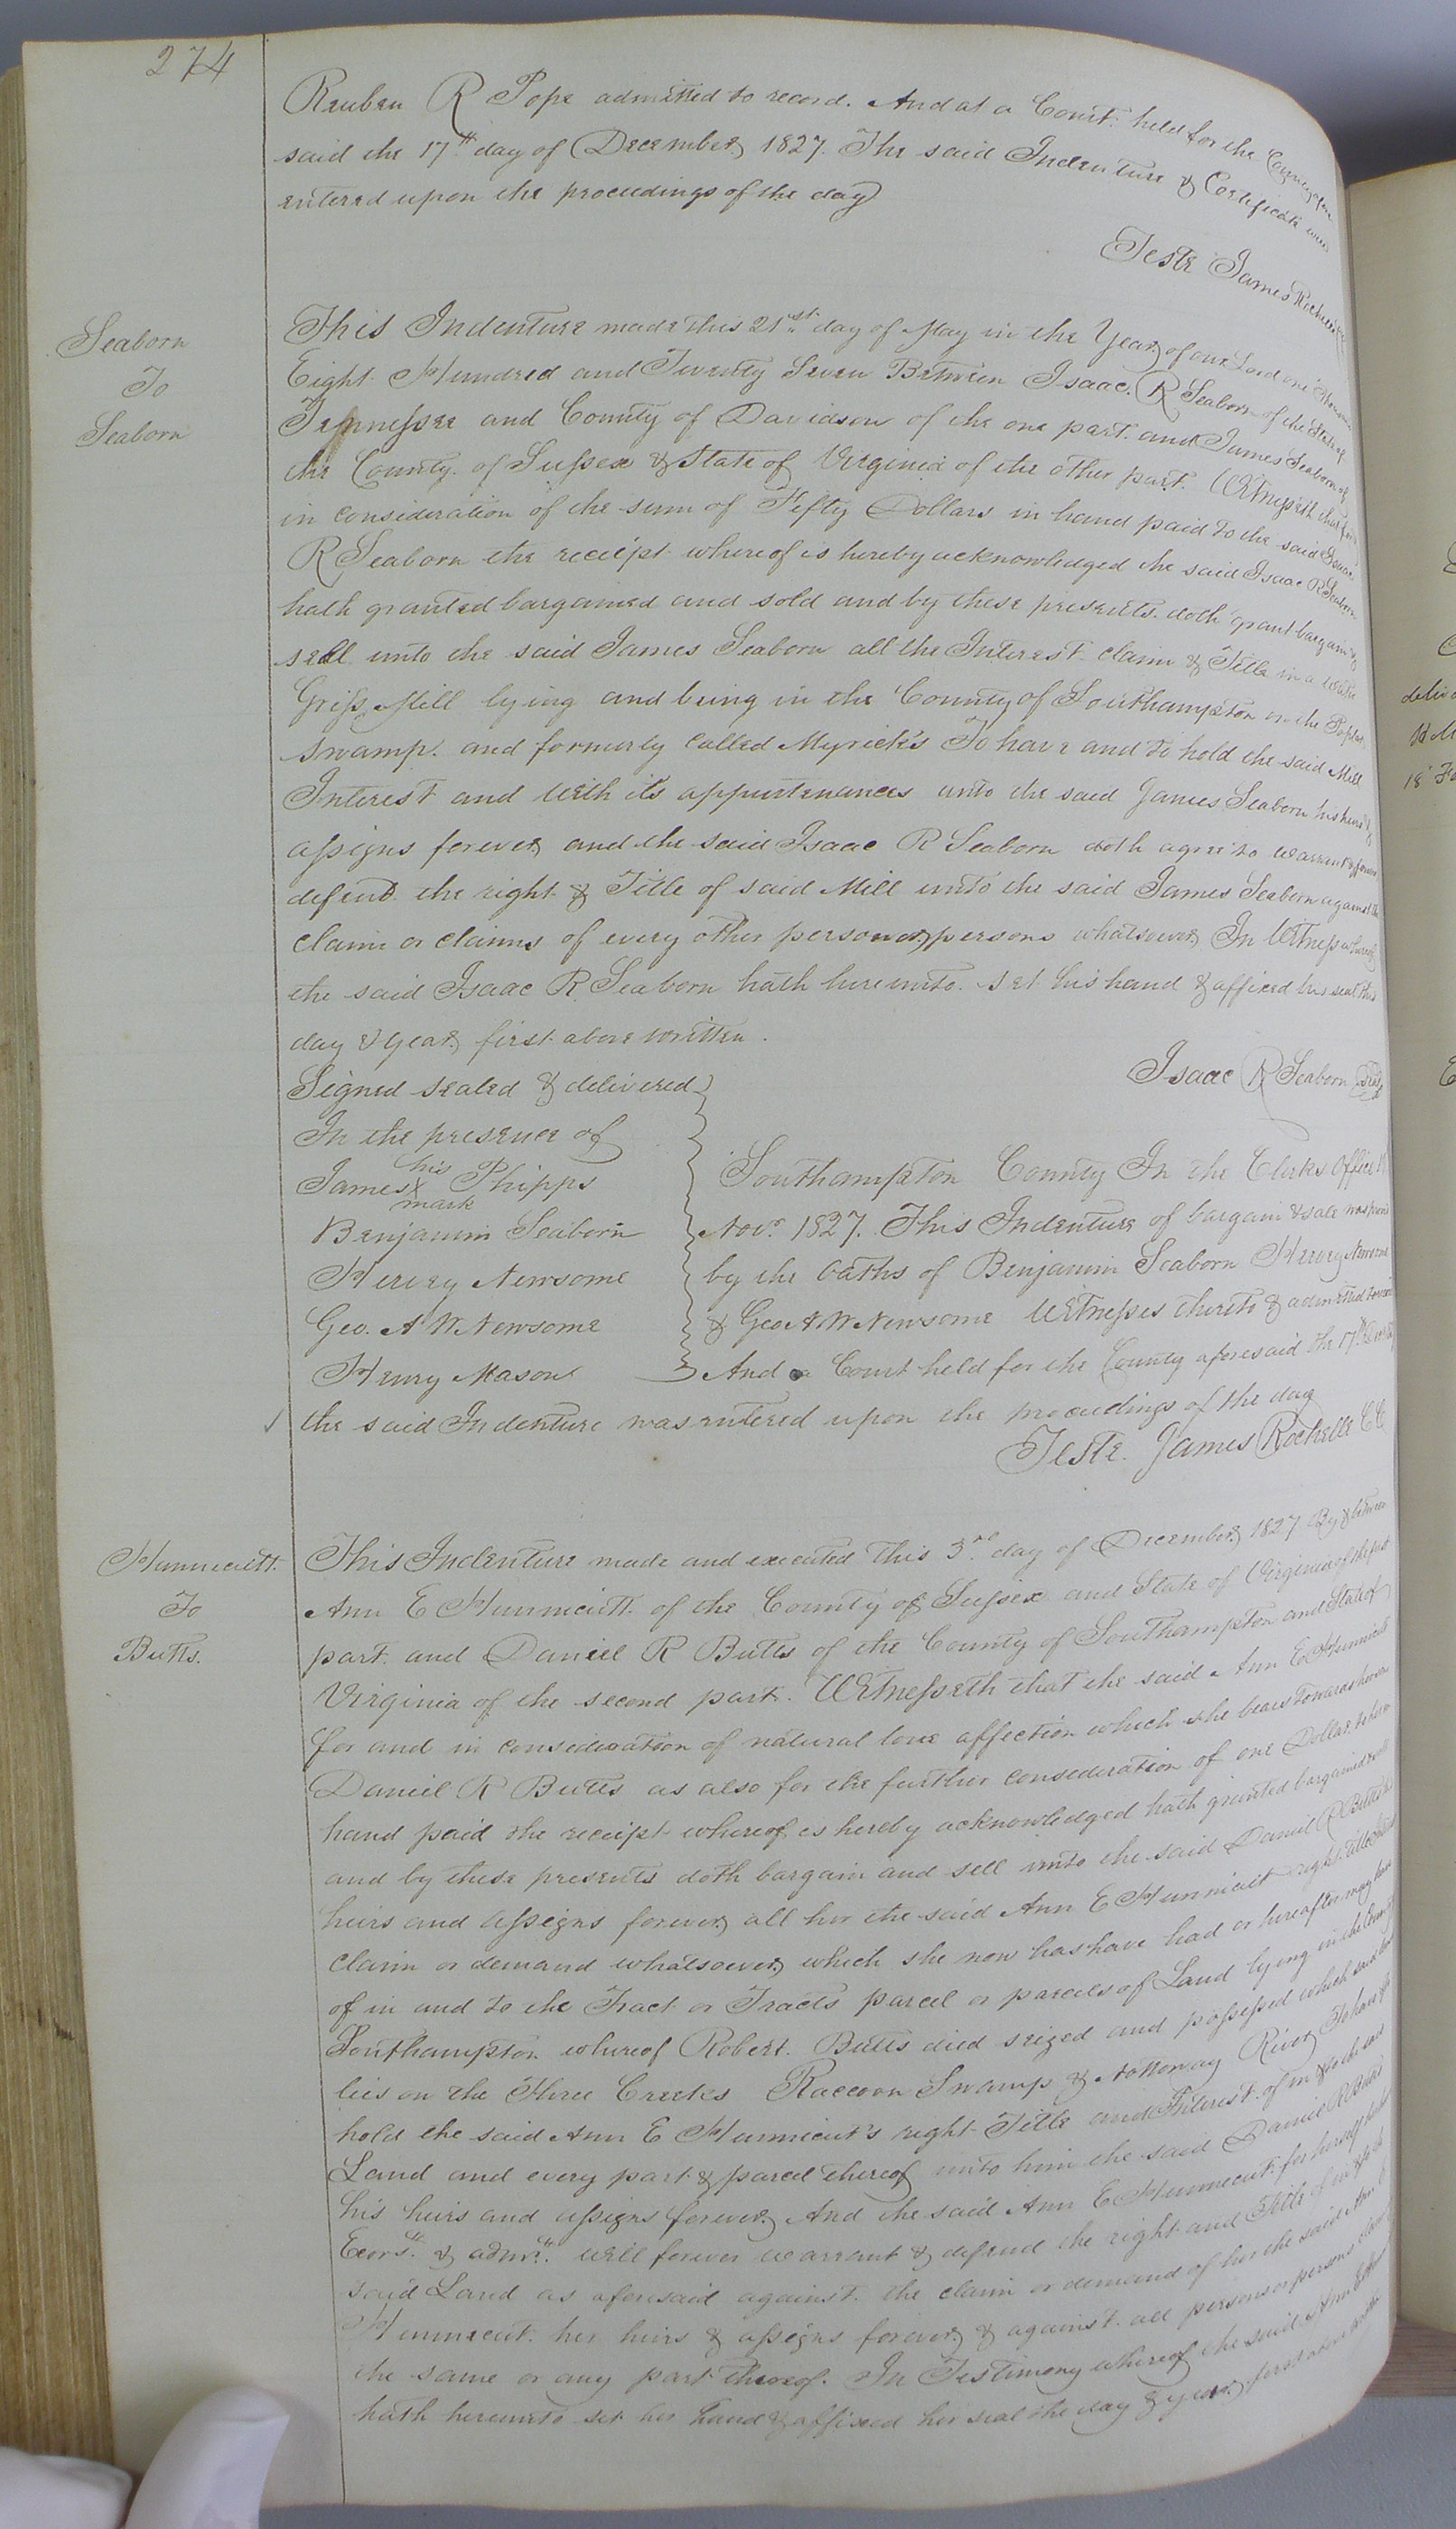 274
Reuben R Pope admitted to record. And at a Court held for the County afore
said the 17th day of December 1827. The said Indenture & Certificate were
entered upon the proceedings of the day
Teste James Rochelle
Seaborn
To
Seaborn
This Indenture made this 21st day of May in the Year of our Lord one Thousand
Eight Hundred and Twenty Seven Between Isaac R Seaborn of the State of
Tennessee and County of Davidson of the one part and James Seaborn of
the County of Sussex & State of Virginia of the other part. Witnesseth that for
in consideration of the sum of Fifty Dollars in hand paid to the said Isaac
R Seaborn the receipt whereof is hereby acknowledged he said Isaac R Seaborn
hath granted bargained and sold and by these presents doth grant bargain &
sell unto the said James Seaborn all the Interest claim & Title in a Water
Griss Mill lying and being in the County of Southampton on the Poplar
swamp. and formerly called Myrick's To have and to hold the said Mill
Interest and with it's appurtenances unto the said James Seaborn his heirs &
assigns forever and the said Isaac R Seaborn doth agree to warrant & forever
defend the right & Title of said Mill unto the said James Seaborn against the
claim or claims of every other person or persons whatsoever In Witness whereof
the said Isaac R Seaborn hath hereunto set his hand & affixed his seal this
day & year first above written.
Isaac R Seaborn Seal
Signed sealed & delivered
In the presence of
James his Phipps
X
mark
Benjamin Seaborn
Hervey Newsome
Geo. A W Newsome
Henry Mason
Southampton County In the Clerks Office
Nov. 1827. This Indenture of bargain & sale was proved
by the oaths of Benjamin Seaborn Hervey Newsome
& Geo A W Newsome Witnesses thereto & admitted to record
And a Court held for the County aforesaid the 17th
the said Indenture was entered upon the proceedings of the day
Teste. James Rochelle CC
Hunnicutt.
To
Butts.
This Indenture made and executed this 3rd day of December 1827 By & between
Ann E Hunnicutt of the County of Sussex and State of Virginia of the first
part and Daniel R Butts of the County of Southampton and State of
Virginia of the second part. Witnesseth that the said Ann E Hunnicutt
for and in consideration of natural love affection which she bears towards
Daniel R Butts as also for the further consideration of one Dollar to her in
hand paid the receipt whereof is hereby acknowledged hath granted bargained & sold
and by these presents doth bargain and sell unto the said Daniel R Butts his
heirs and assigns forever all her the said Ann E Hunnicutt right title
claim or demand whatsoever which she now has have had or hereafter may have
of in and to the Tract or Tracts parcel or parcels of Land lying in the County
Southampton whereof Robert Butts died seized and possessed which said Land
lies on the Three Creeks Raccoon Swamp & Nottoway River To have &
hold the said Ann E Hunnicut's right Title and Interest of in & to the said
Land and every part & parcel thereof unto him the said Daniel R Butts
his heirs and assigns forever And the said Ann E Hunnicut for herself her
Exors. & admrs. will forever warrant & defend the right and Title of in & to the
said Land as aforesaid against the claim or demand of her the said Ann E
Hunnicut her heirs & assigns forever & against all persons or persons
the same or any part thereof. In Testimony whereof the said Ann E
hath hereunto set her hand & affixed her seal the day & year first above written